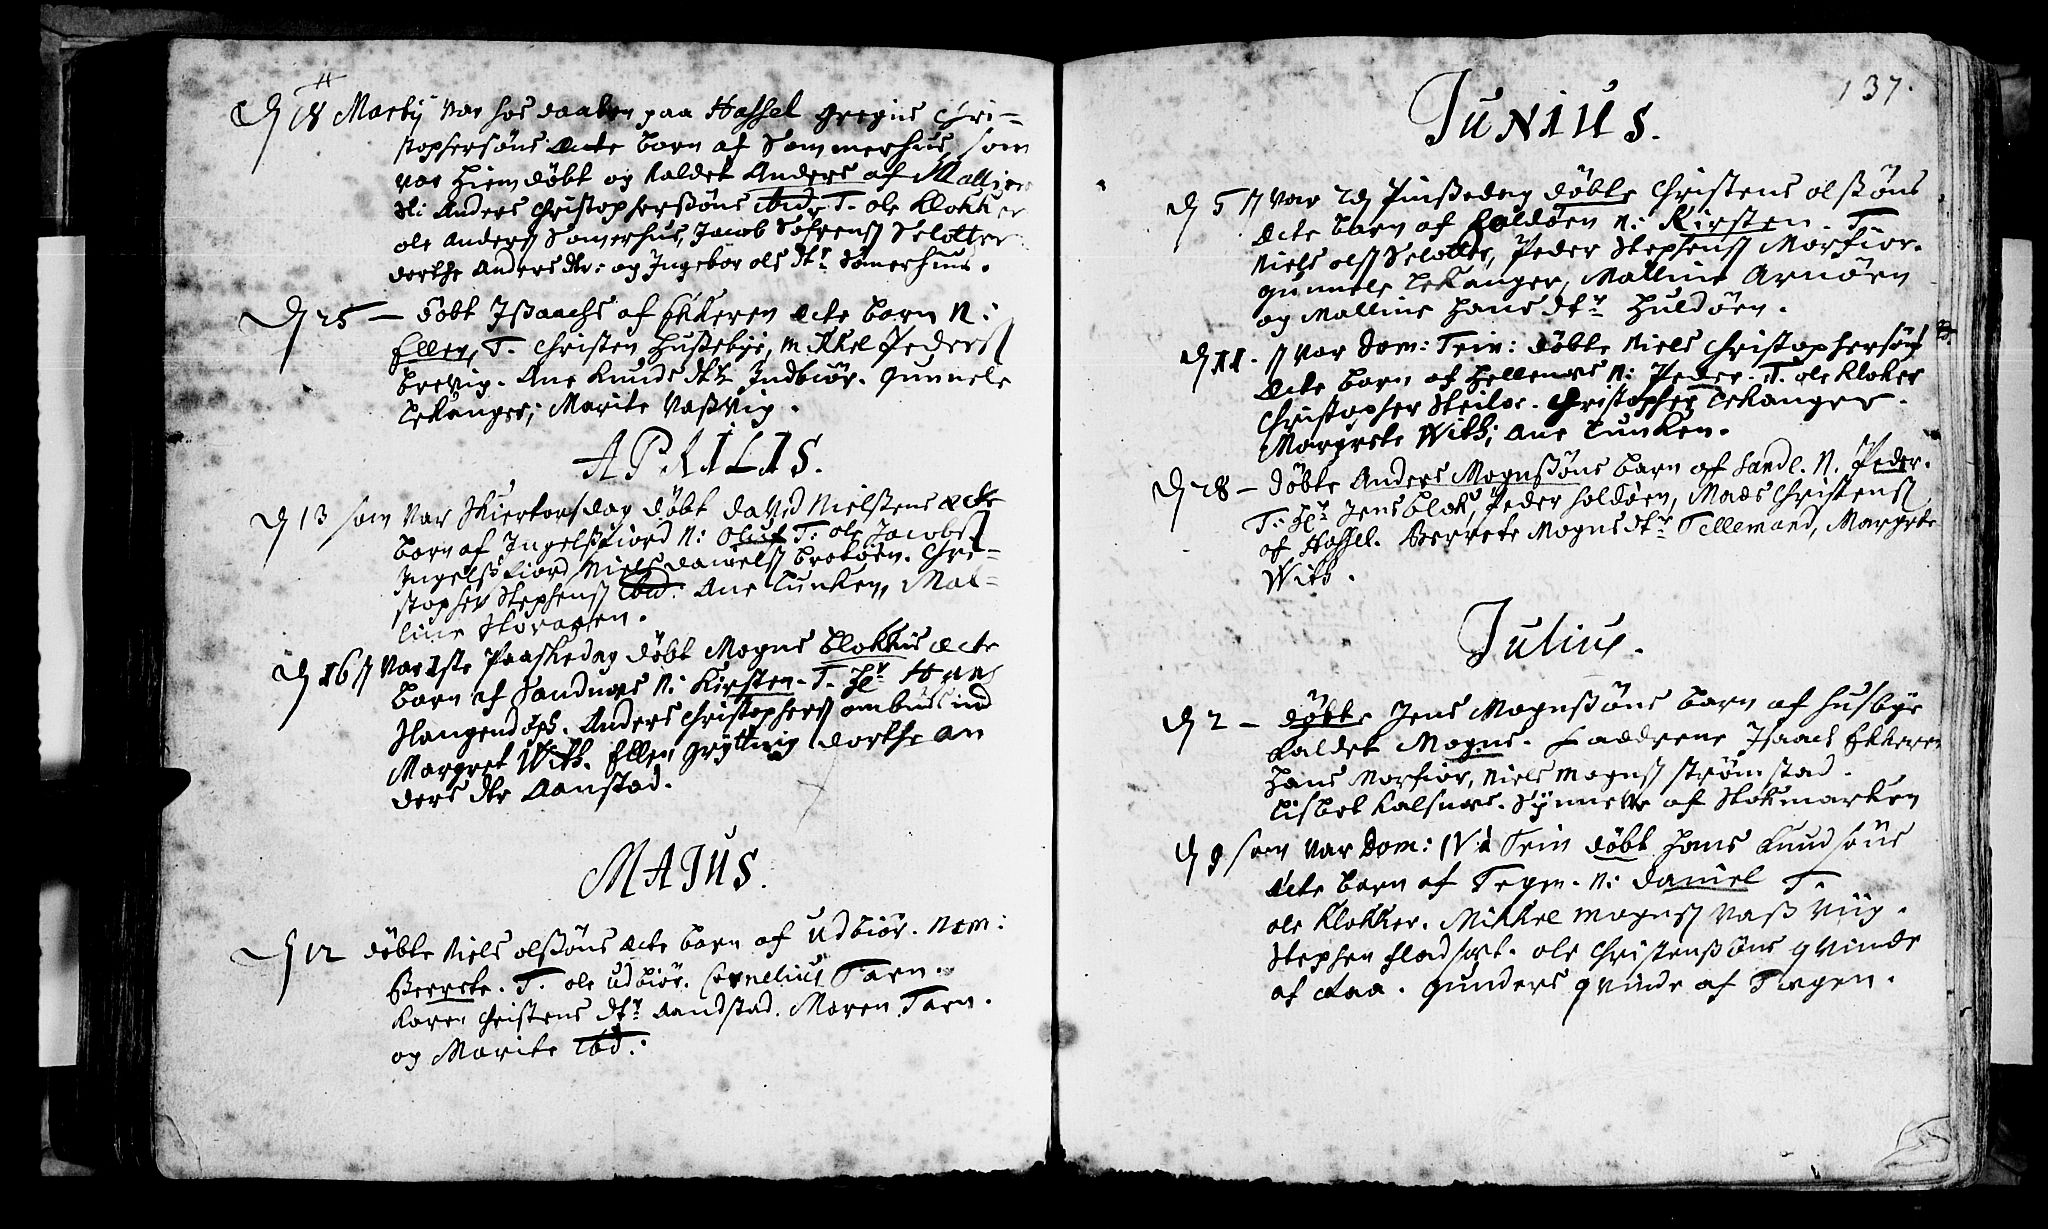 D 18 Martij var hos daaben paa Hassel Gregius Chri-
stophersøns ecte barn af Sommerhus, som
var hiemdøbt og kaldet Anders af
Anders Christopherssøns ibid. T. ole Klokker
ole Anders Somerhus, Jacob Sørens Slotter
dorthe Anders dtr: og Ingebor ols dtr Somerhus.
D 25 — døbt Issaachs af Ekkeren ecte barn N:
Ellen, T. Christen Hussebye, Mikkel Peders
brevig. Ane Knuds dtr Indbiør. Gunnele
Lekanger, Marite Vassvig.
APRILIS.
D 13 som var Skiertorsdag døbt David Nielssens ecte
barn af Ingelsfiord N: Oluf T: ole Jacobs
Ingelsfiord Niels daniels brotøen. Chri-
stopher Stephens ibid: Ane Lunken, Mal-
line
D 16 var 1ste Paaskedag døbt Mogns Blokkis ecte
barn af Sandnes N: Kirsten. T. Hr Hans
Anders Christophers ombuds
Margret With. Ellen Gryttvig dorthe An
ders dtr Aanstad.
MAJUS.
D 12 døbte Niels olssøns ecte barn af Udbiør. Nom:
Berrete. T. ole Udbiør. Cornelius Tarn.
Karen Christens dtr Aandstad. Maren Tarn.
og Marite ibid:
137.
JUNIUS.
D 5 var 2d Pinssedag døbte Christens olssøns
ecte barn af Holdøen N: Kirsten. T.
Niels ols Slotter, Peder Stephens Morfior.
Gunnele Lekanger, Malline Arnøen
og Malline Hans dtr Huldøen.
D 11. var Dom: Trin: døbte Niels Christophersøns
ecte barn af Hellenes N: Peder. T. ole Kloker
Christopher Christopher Lekanger.
Margrete With; Ane Lunken.
D 28 — døbte Anders Mognssøns barn af Sandl. N. Peder.
T: Hr Jens blok, Peder Holdøen, Mads Christens
af Hassel. Berrete Mogns dtr Tellemand, Margrete
With.
Julius.
D 2 — døbte Jens Mognssøns barn af Husbye
kaldet Mogns. Faddrene Isaach Ekkeren
Hans Morfior, Niels Mogns strømstad.
Lisbet Kalsnes. Synnetve af Stokmarken
D 9 som var Dom: IV Trin døbt Hans Knudsøns
ecte barn af Tegen. N: Daniel T.
ole Klokker. Mikkel Mogns Vassviig.
Stephen fladset. ole Christenssøns qvinde
af Raa. Gunders qvinde af Tregen.